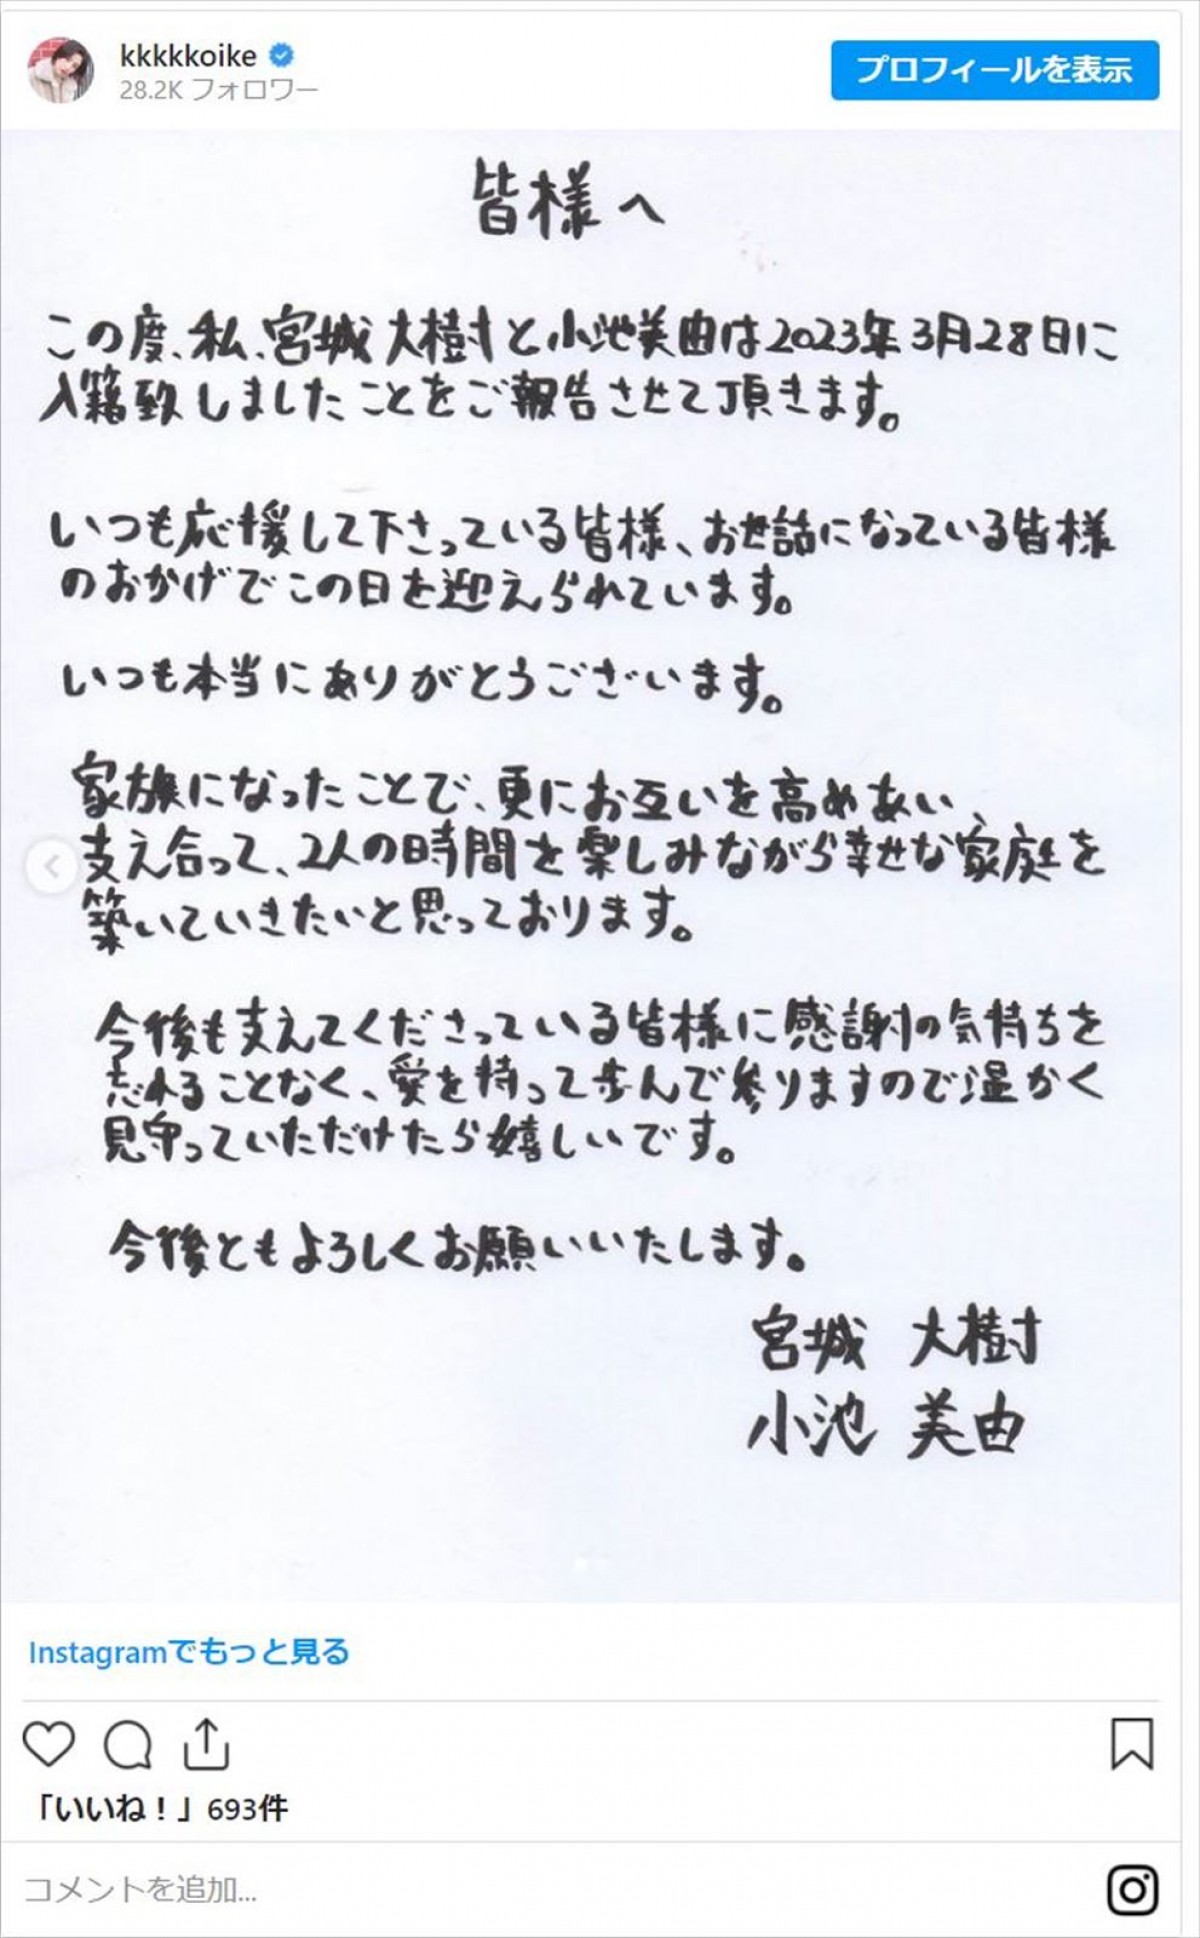 kkkkkoike
28.2K フォロワー
プロフィールを表示
皆様へ
この度、私、宮城大樹と小池美由は2023年3月28日に
入籍致しましたことをご報告させて頂きます。
いつも応援して下さっている皆様、お世話になっている皆様
のおかげでこの日を迎えられています。
いつも本当にありがとうございます。
家族になったことで、更にお互いを高めあい、
支え合って、2人の時間を楽しみながら幸せな家庭を
築いていきたいと思っております。
今後も支えてくださっている皆様に感謝の気持ちを
忘れることなく、愛を持って歩んで参りますので温かく
見守っていただけたら嬉しいです。
今後ともよろしくお願いいたします。
宮城 大樹
小池 美由
Instagramでもっと見る
「いいね！」693件
コメントを追加...